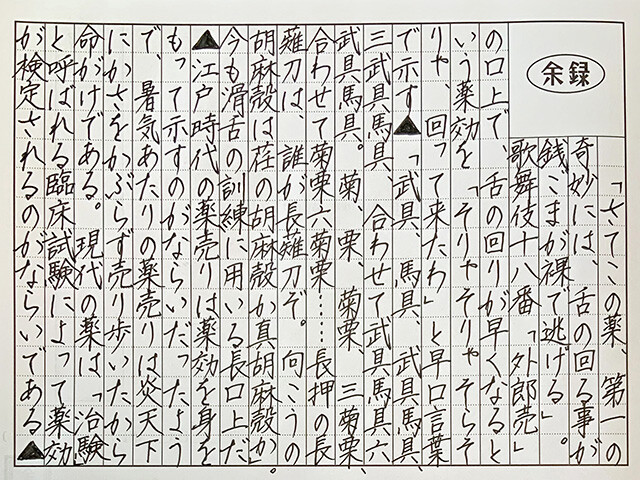 余録
「さてこの薬、第一の
奇妙には、舌の回る事が
銭ごまが裸で逃げる」。
歌舞伎十八番「外郎売」
の口上で、舌の回りが早くなると
いう薬効を「そりゃそりゃそらそ
りゃ、回って来たわ」と早口言葉
で示す▲「武具、馬具、武具馬具、
三武具馬具、合わせて武具馬具六
武具馬具。菊、栗、菊栗、三菊栗、
合わせて菊栗六菊栗……長押の長
薙刀は、誰が長薙刀ぞ。向こうの
胡麻殻は荏の胡麻殻か真胡麻殻か」。
今も滑舌の訓練に用いる長口上だ
▲江戸時代の薬売りは薬効を身を
もって示すのがならいだったよう
で、暑気あたりの薬売りは炎天下
にかさをかぶらず売り歩いたから
命がけである。現代の薬は「治験」
と呼ばれる臨床試験によって薬効
が検定されるのがならいである▲